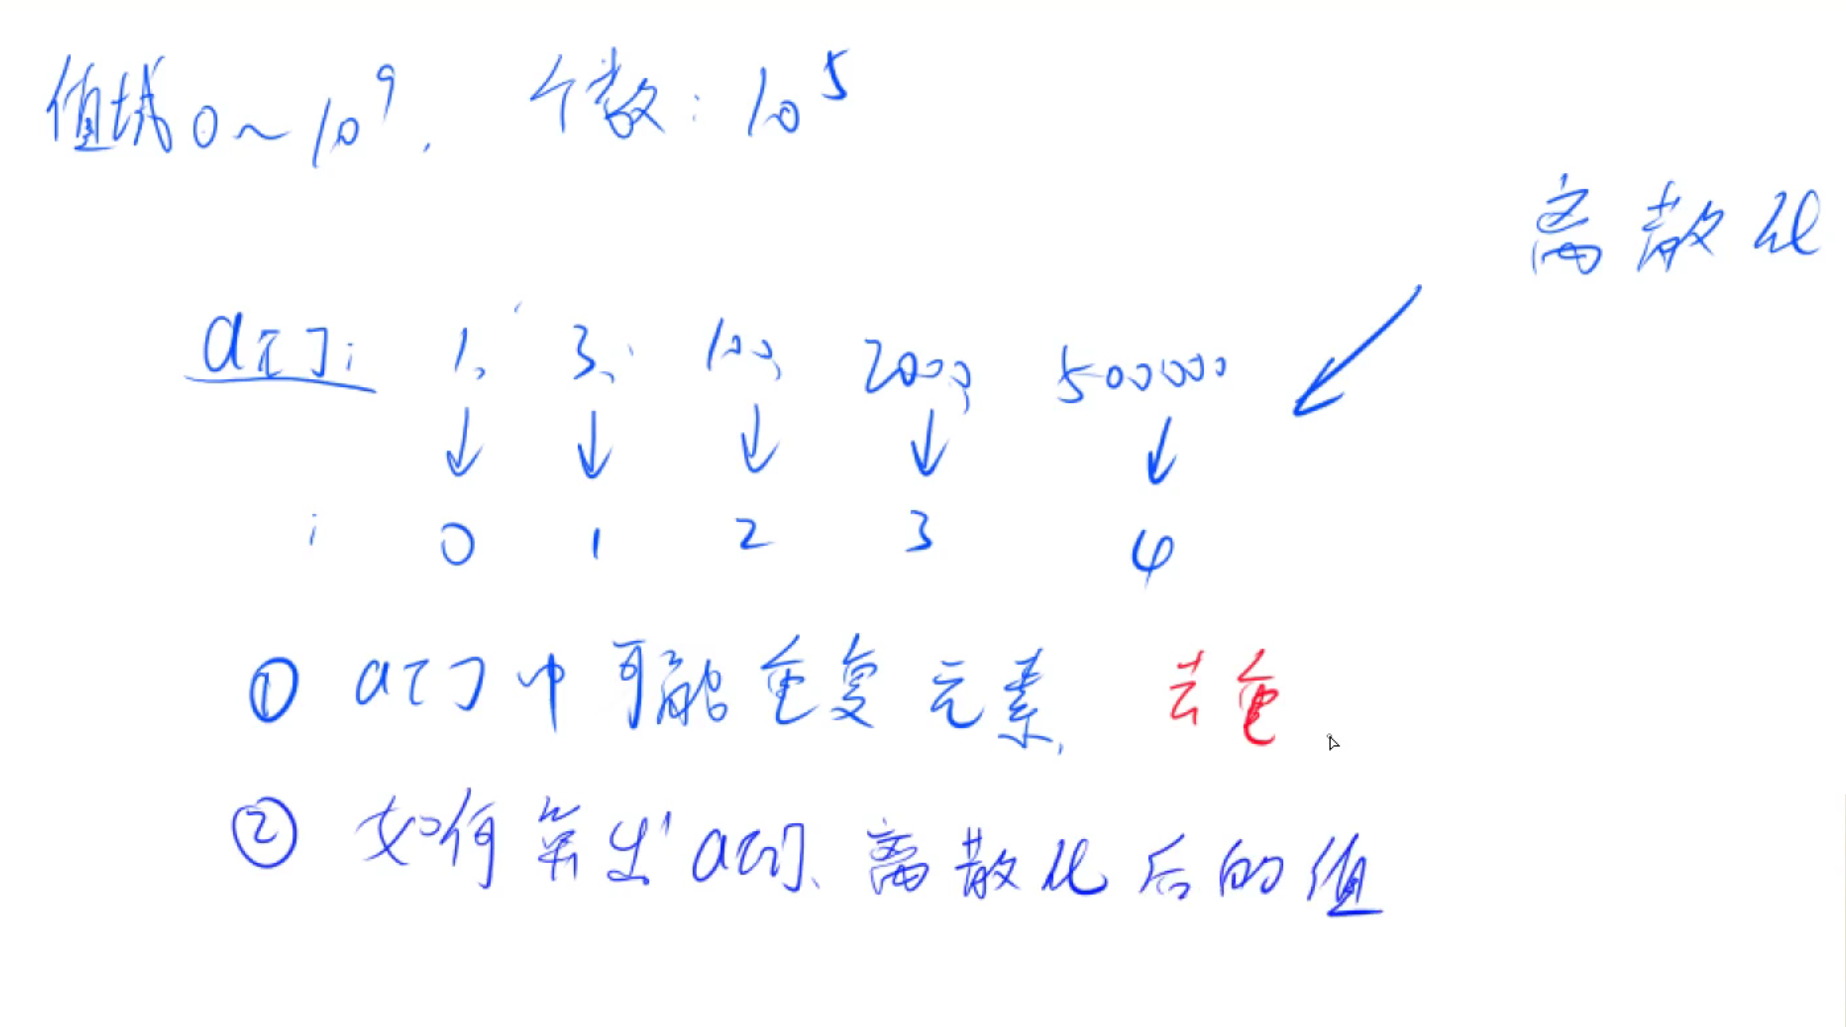 值域 0 ~ 10⁹, 个数: 10⁵
离散化
a[]: 1, 3, 100, 2000, 500000
0 1 2 3 4
① a[]中可能重复元素, 去重
② 如何算出a[i]离散化后的值